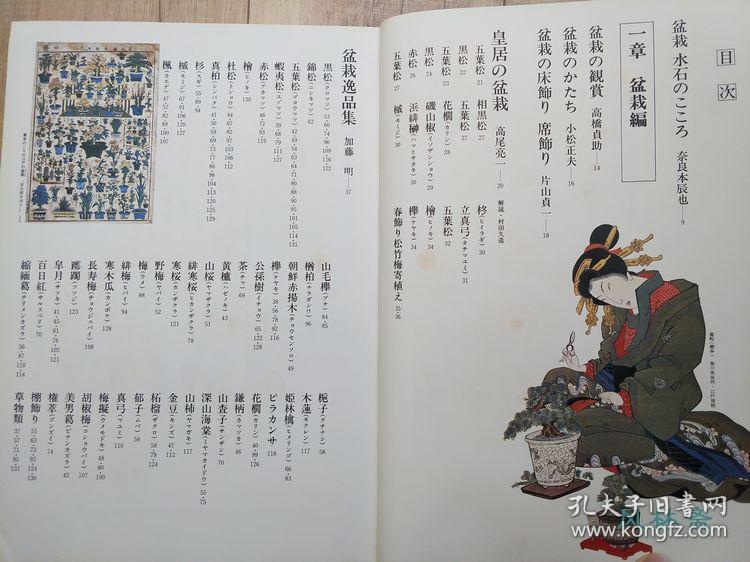 目次
盆栽 水石のこころ 奈良本辰也―9
一章 盆栽編
盆栽の観賞 高橋貞助―14
盆栽のかたち 小松正夫―16
盆栽の床飾り 席飾り 片山貞一―18
皇居の盆栽 高尾亮一―20 解説・村田久造
五葉松 21
黒松 22
五葉松 23
黒松 24
赤松 26
五葉松 27
相黒松 27
五葉松 27
花櫚(カリン) 28
磯山椒(イソザンショウ) 29
浜緋榊(ハマヒサカキ) 30
槭(モミジ) 30
柊(ヒイラギ) 30
立真弓(タチマユミ) 31
五葉松 32
檜(ヒノキ) 34
欅(ケヤキ) 34
春飾り松竹梅寄植え 35 36
盆栽逸品集 加藤 明―37
黒松(クロマツ) 53・60・74・96・109・122
錦松(ニシキマツ) 62
五葉松(ゴヨウマツ)
蝦夷松(エゾマツ)
赤松(アカマツ)
檜(ヒノキ) 130
杜松(トショウ)
真柏(シンパク)
杉(スギ) 55・89・94
槭(モミジ)
楓(カエデ)
山毛欅(ブナ) 84・85
楢柏(ナラガシワ) 96
朝鮮赤揚木(チョウセンソロ) 49
欅(ケヤキ) 38・56・78・92・116
公孫樹(イチョウ) 65・122・128
茶(チャ) 69
黄櫨(ハゼノキ) 43
山桜(ヤマザクラ) 51
緋寒桜(ヒカンザクラ) 78
寒桜(カンザクラ) 121
野梅(ヤバイ) 52
梅(ウメ) 88
緋梅(ヒバイ) 94
寒木瓜(カンボケ) 128
長寿梅(チョウジュバイ) 108
躑躅(ツツジ) 123
皐月(サツキ) 41・45・61・76・102・121
百日紅(サルスベリ) 70
縮緬葛(チリメンカズラ) 56・87・110・114
梔子(クチナシ) 58
木蓮(モクレン) 117
姫林檎(ヒメリンゴ) 66・83
ピラカンサ 118
花櫚(カリン) 40・99・126
鎌柄(カマツカ) 46
山査子(サンザシ) 70
深山海棠(ミヤマカイドウ) 55・75
山柿(ヤマガキ) 117
金豆(キンズ) 47・112
柘榴(ザクロ) 58・79・124
郁子(ムベ) 59
真弓(マユミ) 110
梅擬(ウメモドキ) 48・80・100
胡椒梅(コショウバイ) 107
美男葛(ビナンカズラ) 42
権萃(ゴンズイ) 74
棚飾り 51・63・73・93・124・130
草物類 37・57・71・95・131
孔夫子旧书网
www.kongfz.com